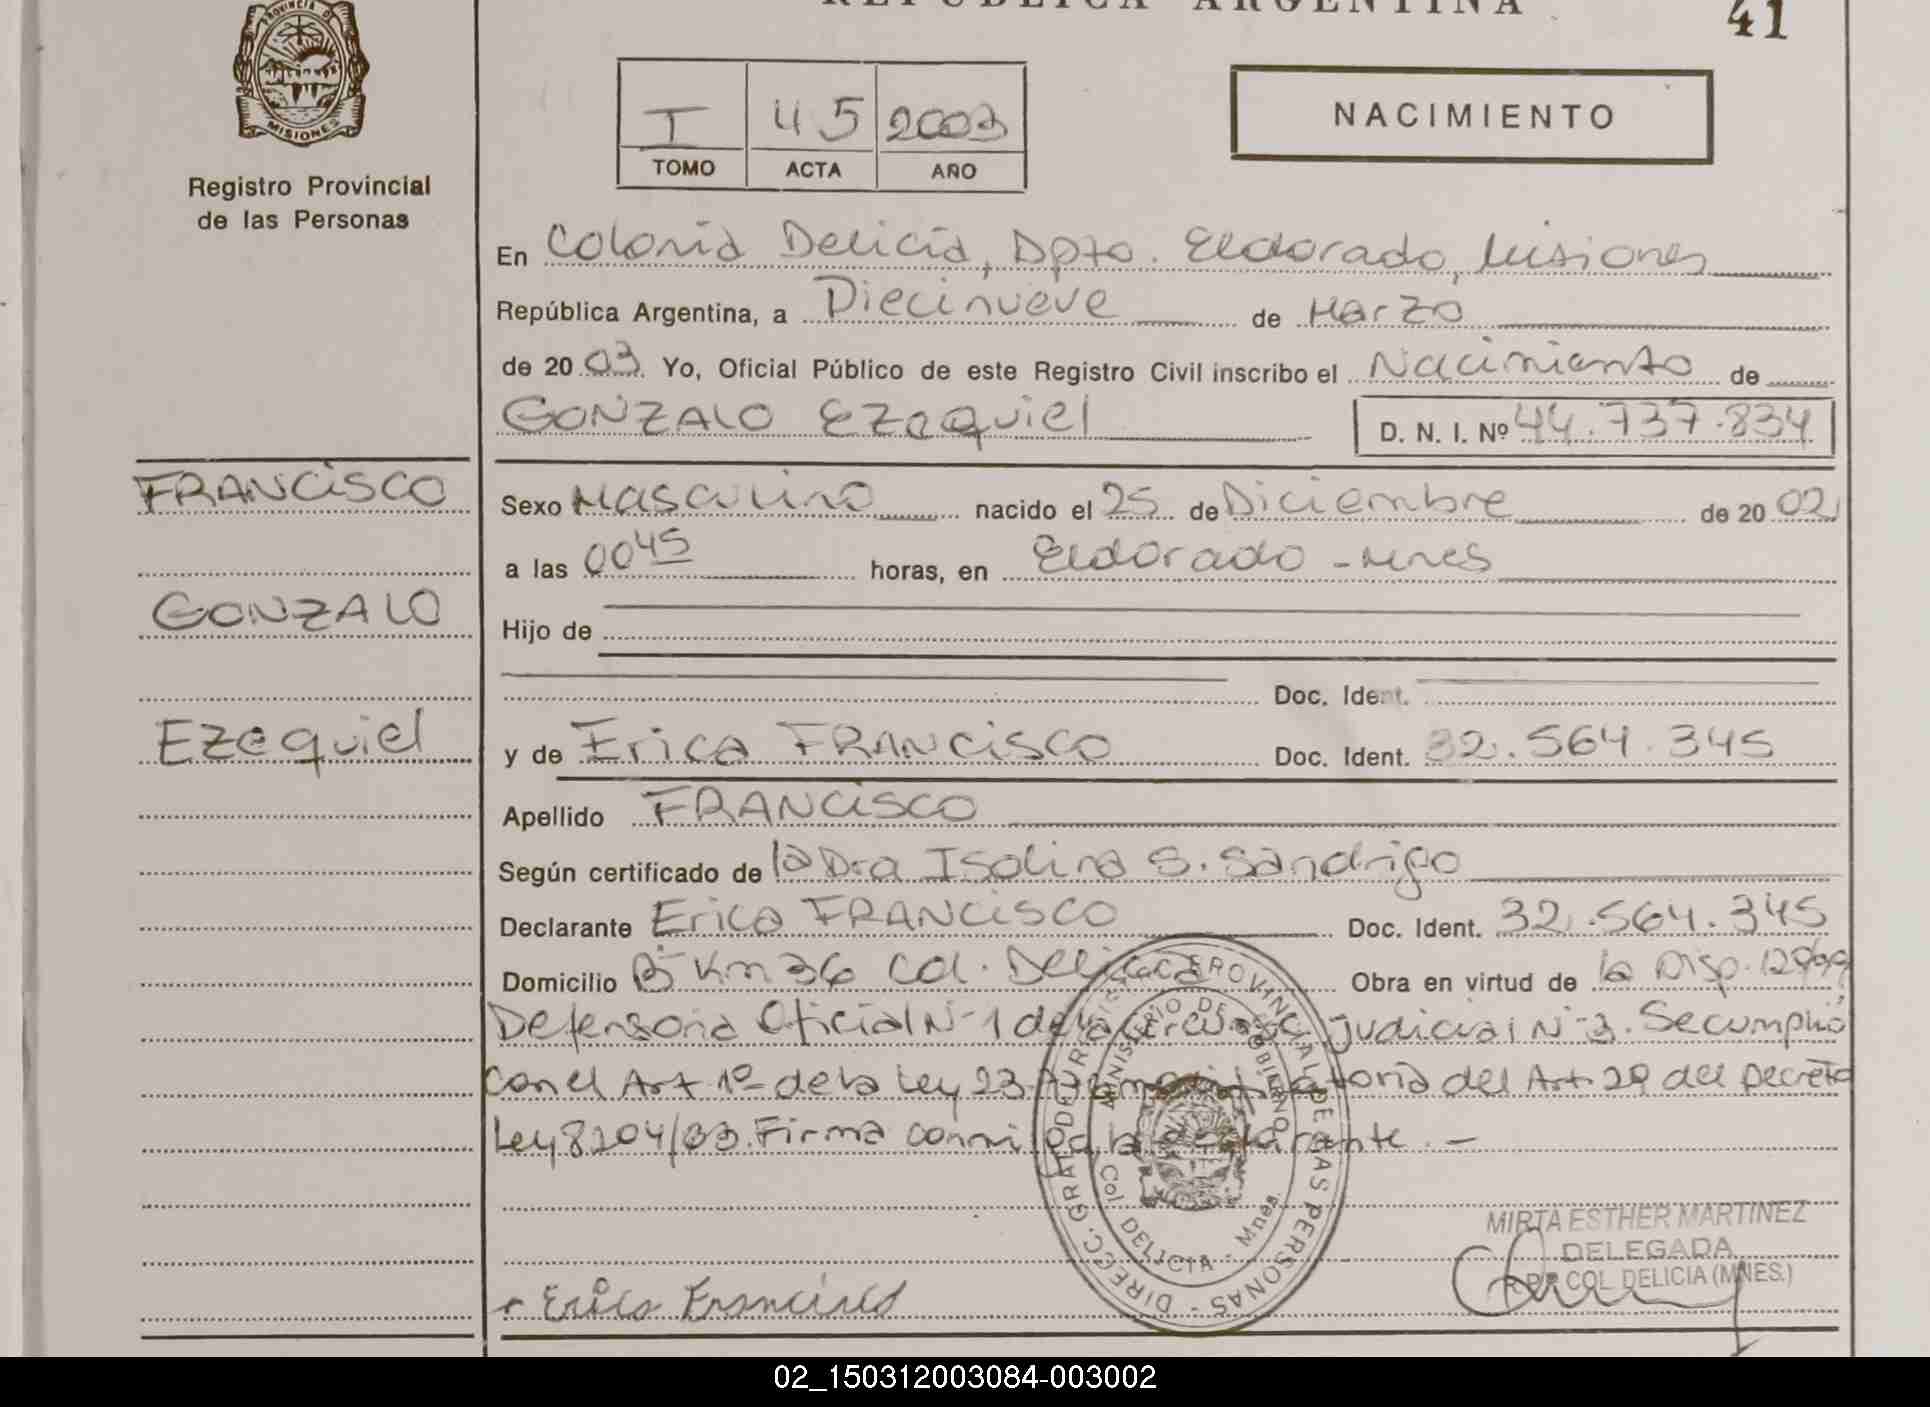 REPUBLICA ARGENTINA
41
PROVINCIA DE
MISIONES
Registro Provincial
de las Personas
I 45 2003
TOMO ACTA AÑO
NACIMIENTO
En Colonia Delicia, Dpto. Eldorado, Misiones
República Argentina, a Diecinueve de Marzo
de 2003 Yo, Oficial Público de este Registro Civil inscribo el Nacimiento de
GONZALO EZequiel D. N. I. Nº 44.737.834
FRANCISCO
GONZALO
EZequiel
Sexo Masculino nacido el 25 de Diciembre de 2002
a las 0045 horas, en Eldorado - Mnes
Hijo de
Doc. Ident.
y de Erica FRANCISCO Doc. Ident. 32.564.345
Apellido FRANCISCO
Según certificado de la Dra Isolina S. Sandrigo
Declarante Erica FRANCISCO Doc. Ident. 32.564.345
Domicilio Bº Km 36 Col. Delicia Obra en virtud de la Disp.
Defensoria Oficial Nº 1 de la Judicial Nº 3. Se cumplió
con el Art 1º de la Ley 23. del Art. 29 del Decreto
Ley 8204/63. Firma conmigo la declarante. -
DIRECC. GRAL. DEL REGISTRO PROVINCIAL DE LAS PERSONAS -
MINISTERIO DE GOBIERNO
Col DELICIA - Mnes.
MIRTA ESTHER MARTINEZ
DELEGADA
R.P.P. COL. DELICIA (MNES.)
Erica Francisco
02_150312003084-003002